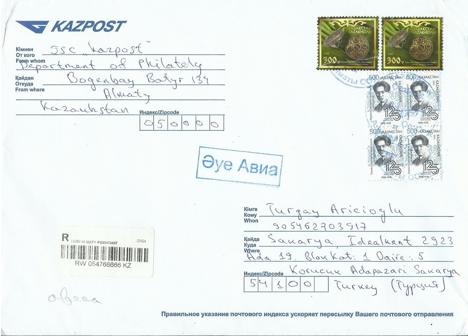 KAZPOST
Кімнен JSC "Kazpost"
От кого
From whom Department of Philately
Қайдан Bogenbay Batyr 134
Откуда
From where Almaty
Kazakhstan
Индекс/Zipcode
050000
300
300
500
500
500
125
125
Әуе Авиа
R
RW 054766866 KZ
Кімге Turgay Aricioglu
Кому
Whom 905462703517
Қайда Sakarya, Idealkent 2923
Куда
Where Ada 19, Blok Kat: 1 Daire: 5
Индекс/Zipcode Adapazari Sakarya
54100 Turkey (Турция)
Правильное указание почтового индекса ускоряет пересылку Вашего почтового отправления